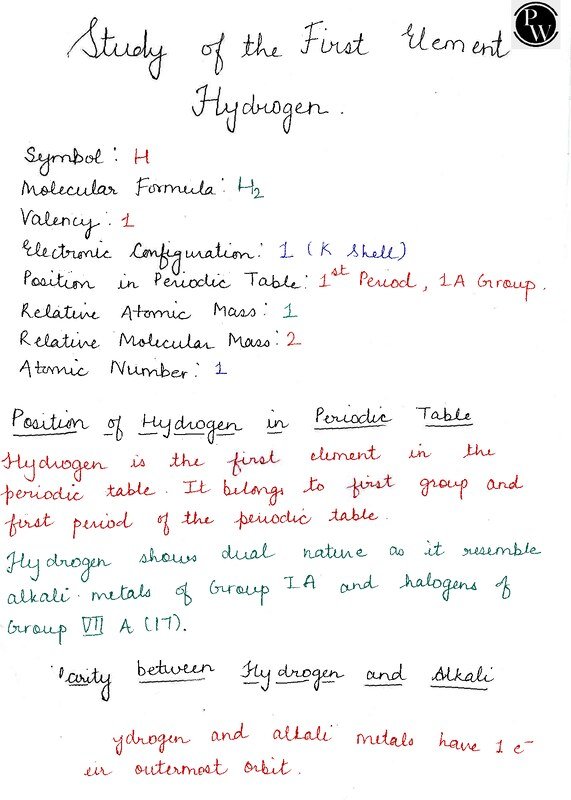 PW
Study of the First Element
Hydrogen.
Symbol: H
Molecular Formula: H₂
Valency: 1
Electronic Configuration: 1 (K Shell)
Position in Periodic Table: 1st Period, 1A Group.
Relative Atomic Mass: 1
Relative Molecular Mass: 2
Atomic Number: 1
Position of Hydrogen in Periodic Table
Hydrogen is the first element in the
periodic table. It belongs to first group and
first period of the periodic table.
Hydrogen shows dual nature as it resemble
alkali metals of Group IA and halogens of
Group VII A (17).
arity between Hydrogen and Alkali
ydrogen and alkali metals have 1 e⁻
eir outermost orbit.